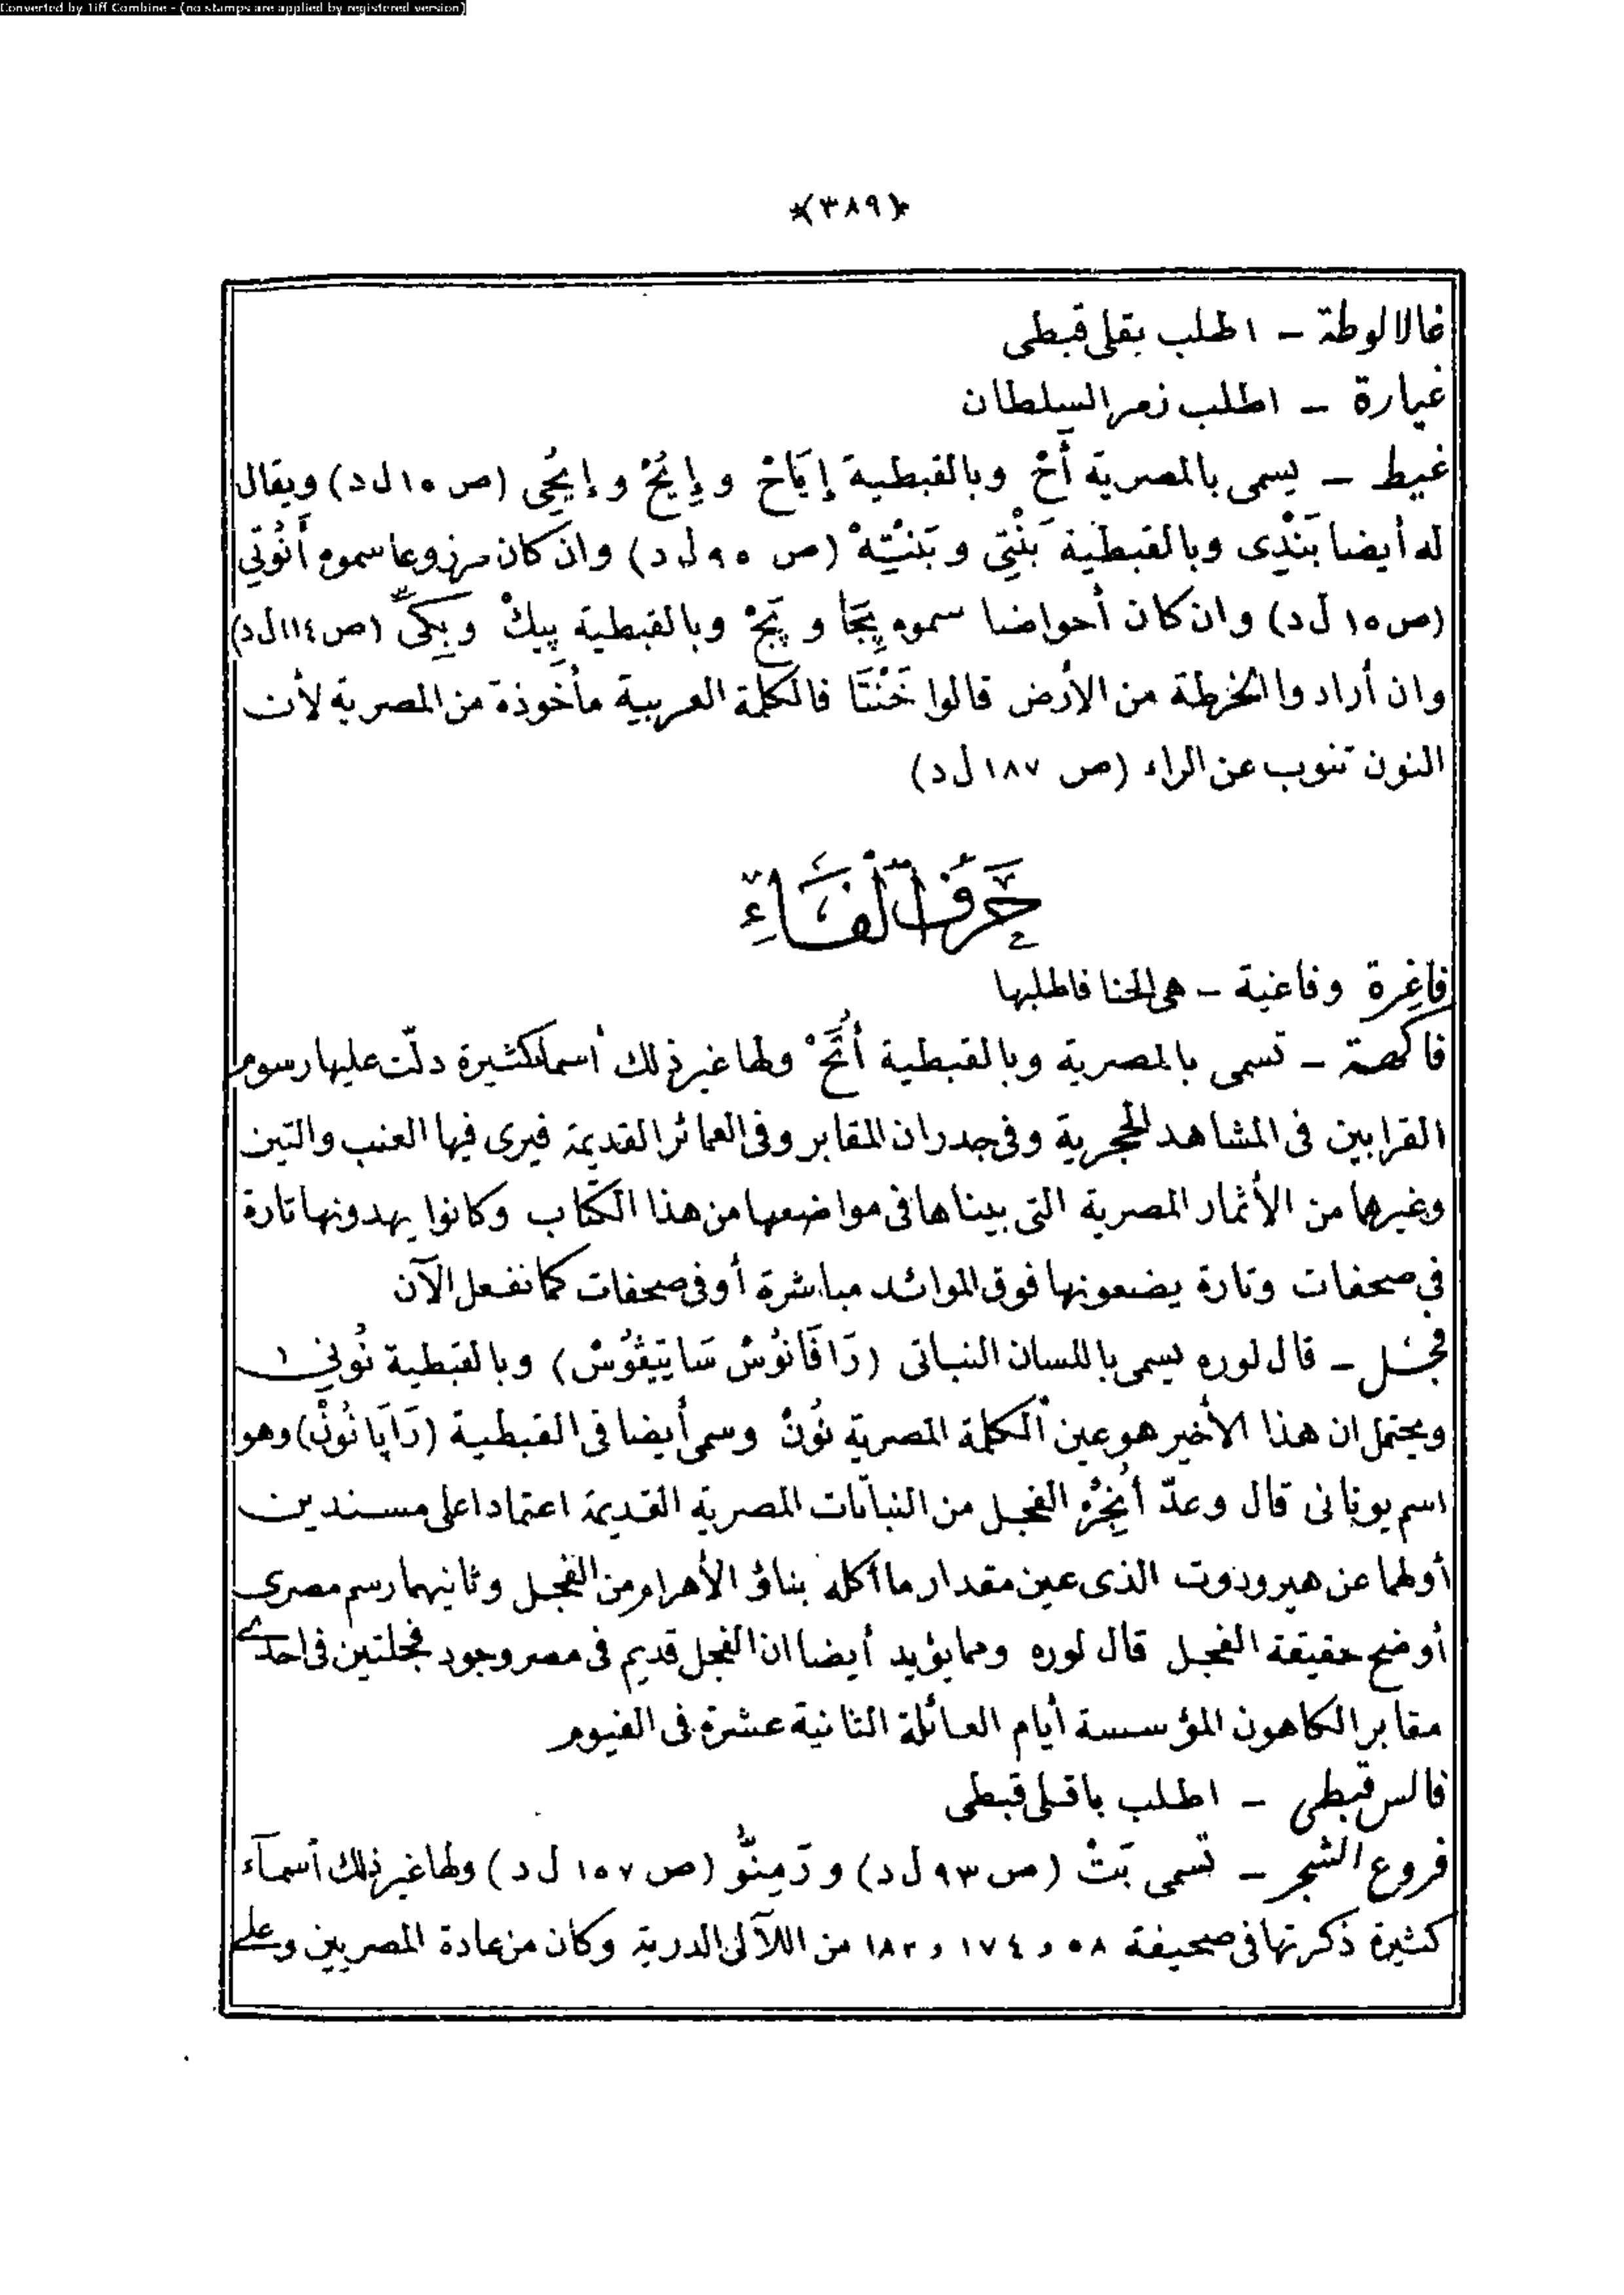 Converted by Tiff Combine - (no stamps are applied by registered version)
﴿٣٨٩﴾
غالالوطة – اطلب بقلى قبطى
غيارة – اطلب زمر السلطان
غيط – يسمى بالمصرية أَخْ وبالقبطية إِيَاخْ و إِيُخْ و إِيُخِى (ص ١٥ ل د) ويقال
له أيضا بَنْدِى وبالقبطية بَنْتِى و بَنْتِهْ (ص ٩٥ ل د) وان كان مزروعا سموه أَنُوتِي
(ص ١٥ ل د) وان كان أحواضا سموه پِجَا و پَجْ وبالقبطية پِيكْ و بِكِىّ (ص ١١٤ ل د)
وان أرادوا الخرطة من الأرض قالوا خَنْتَا فالكلمة العربية مأخوذة من المصرية لأن
النون تنوب عن الراء (ص ١٨٧ ل د)
حَرفُ الْفَاءِ
فاغِرة وفاغية – هى الحنا فاطلبها
فاكهة – تسمى بالمصرية وبالقبطية أُتَخْ ولها غير ذلك أسما كثيرة دلّت عليها رسوم
القرابين فى المشاهد الحجرية وفى جدران المقابر وفى العمائر القديمة فيرى فيها العنب والتين
وغيرها من الأثمار المصرية التى بيناها فى مواضعها من هذا الكتاب وكانوا يهدونها تارة
فى صحفات وتارة يضعونها فوق الموائد مباشرة أو فى صحفات كما نفعل الآن
فجل – قال لوره يسمى باللسان النباتى (رَافَانُوسْ سَاتِيڤُوسْ) وبالقبطية نُونِى
ويحتمل ان هذا الأخير هو عين الكلمة المصرية نُونْ وسمى أيضا فى القبطية (رَاپَانُونْ) وهو
اسم يونانى قال وعدّ أُنْجِرْ الفجل من النباتات المصرية القديمة اعتمادا على مسندين
أولهما عن هيرودوت الذى عين مقدار ما أكله بناؤ الأهرام من الفجل وثانيهما رسم مصرى
أوضح حقيقة الفجل قال لوره ومما يؤيد أيضا ان الفجل قديم فى مصر وجود فجلتين فى احدى
مقابر الكاهون المؤسسة أيام العائلة الثانية عشرة فى الفيوم
فالس قبطى – اطلب باقلى قبطى
فروع الشجر – تسمى بَتْ (ص ٩٣ ل د) و رَمِنُو (ص ١٥٧ ل د) ولها غير ذلك أسمآء
كثيرة ذكرتها فى صحيفة ٥٨ و ١٧٤ و ١٨٢ من اللآلى الدرية وكان من عادة المصريين وعلى